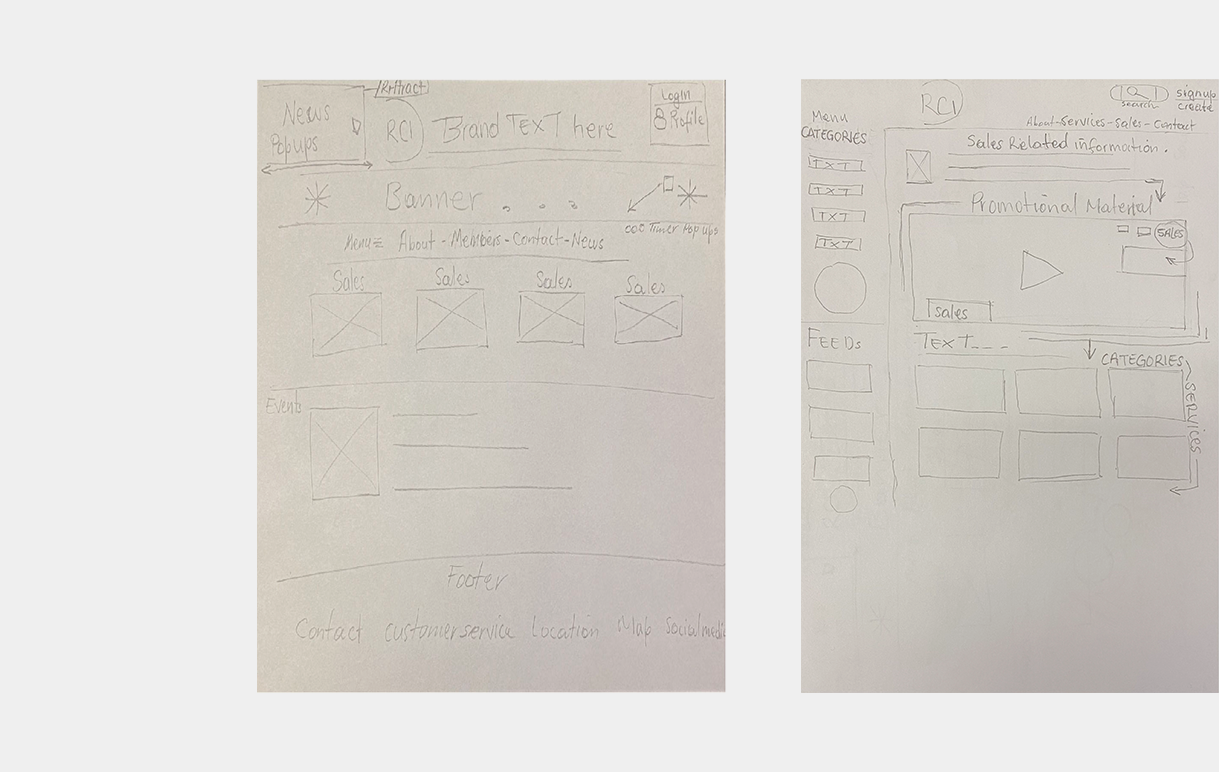 News
Popups
RCI
Brand TEXT here
LogIn
Profile
Banner . . .
Timer Pop ups
Menu
About - Members - Contact - News
Sales
Sales
Sales
Sales
Events
Footer
Contact customer service Location Social media
RCI
search
signup
create
About - Services - Sales - Contact
Menu
CATEGORIES
TXT
TXT
TXT
TXT
FEEDs
Sales Related information.
Promotional Material
SALES
sales
TEXT_ _ _
CATEGORIES
SERVICES